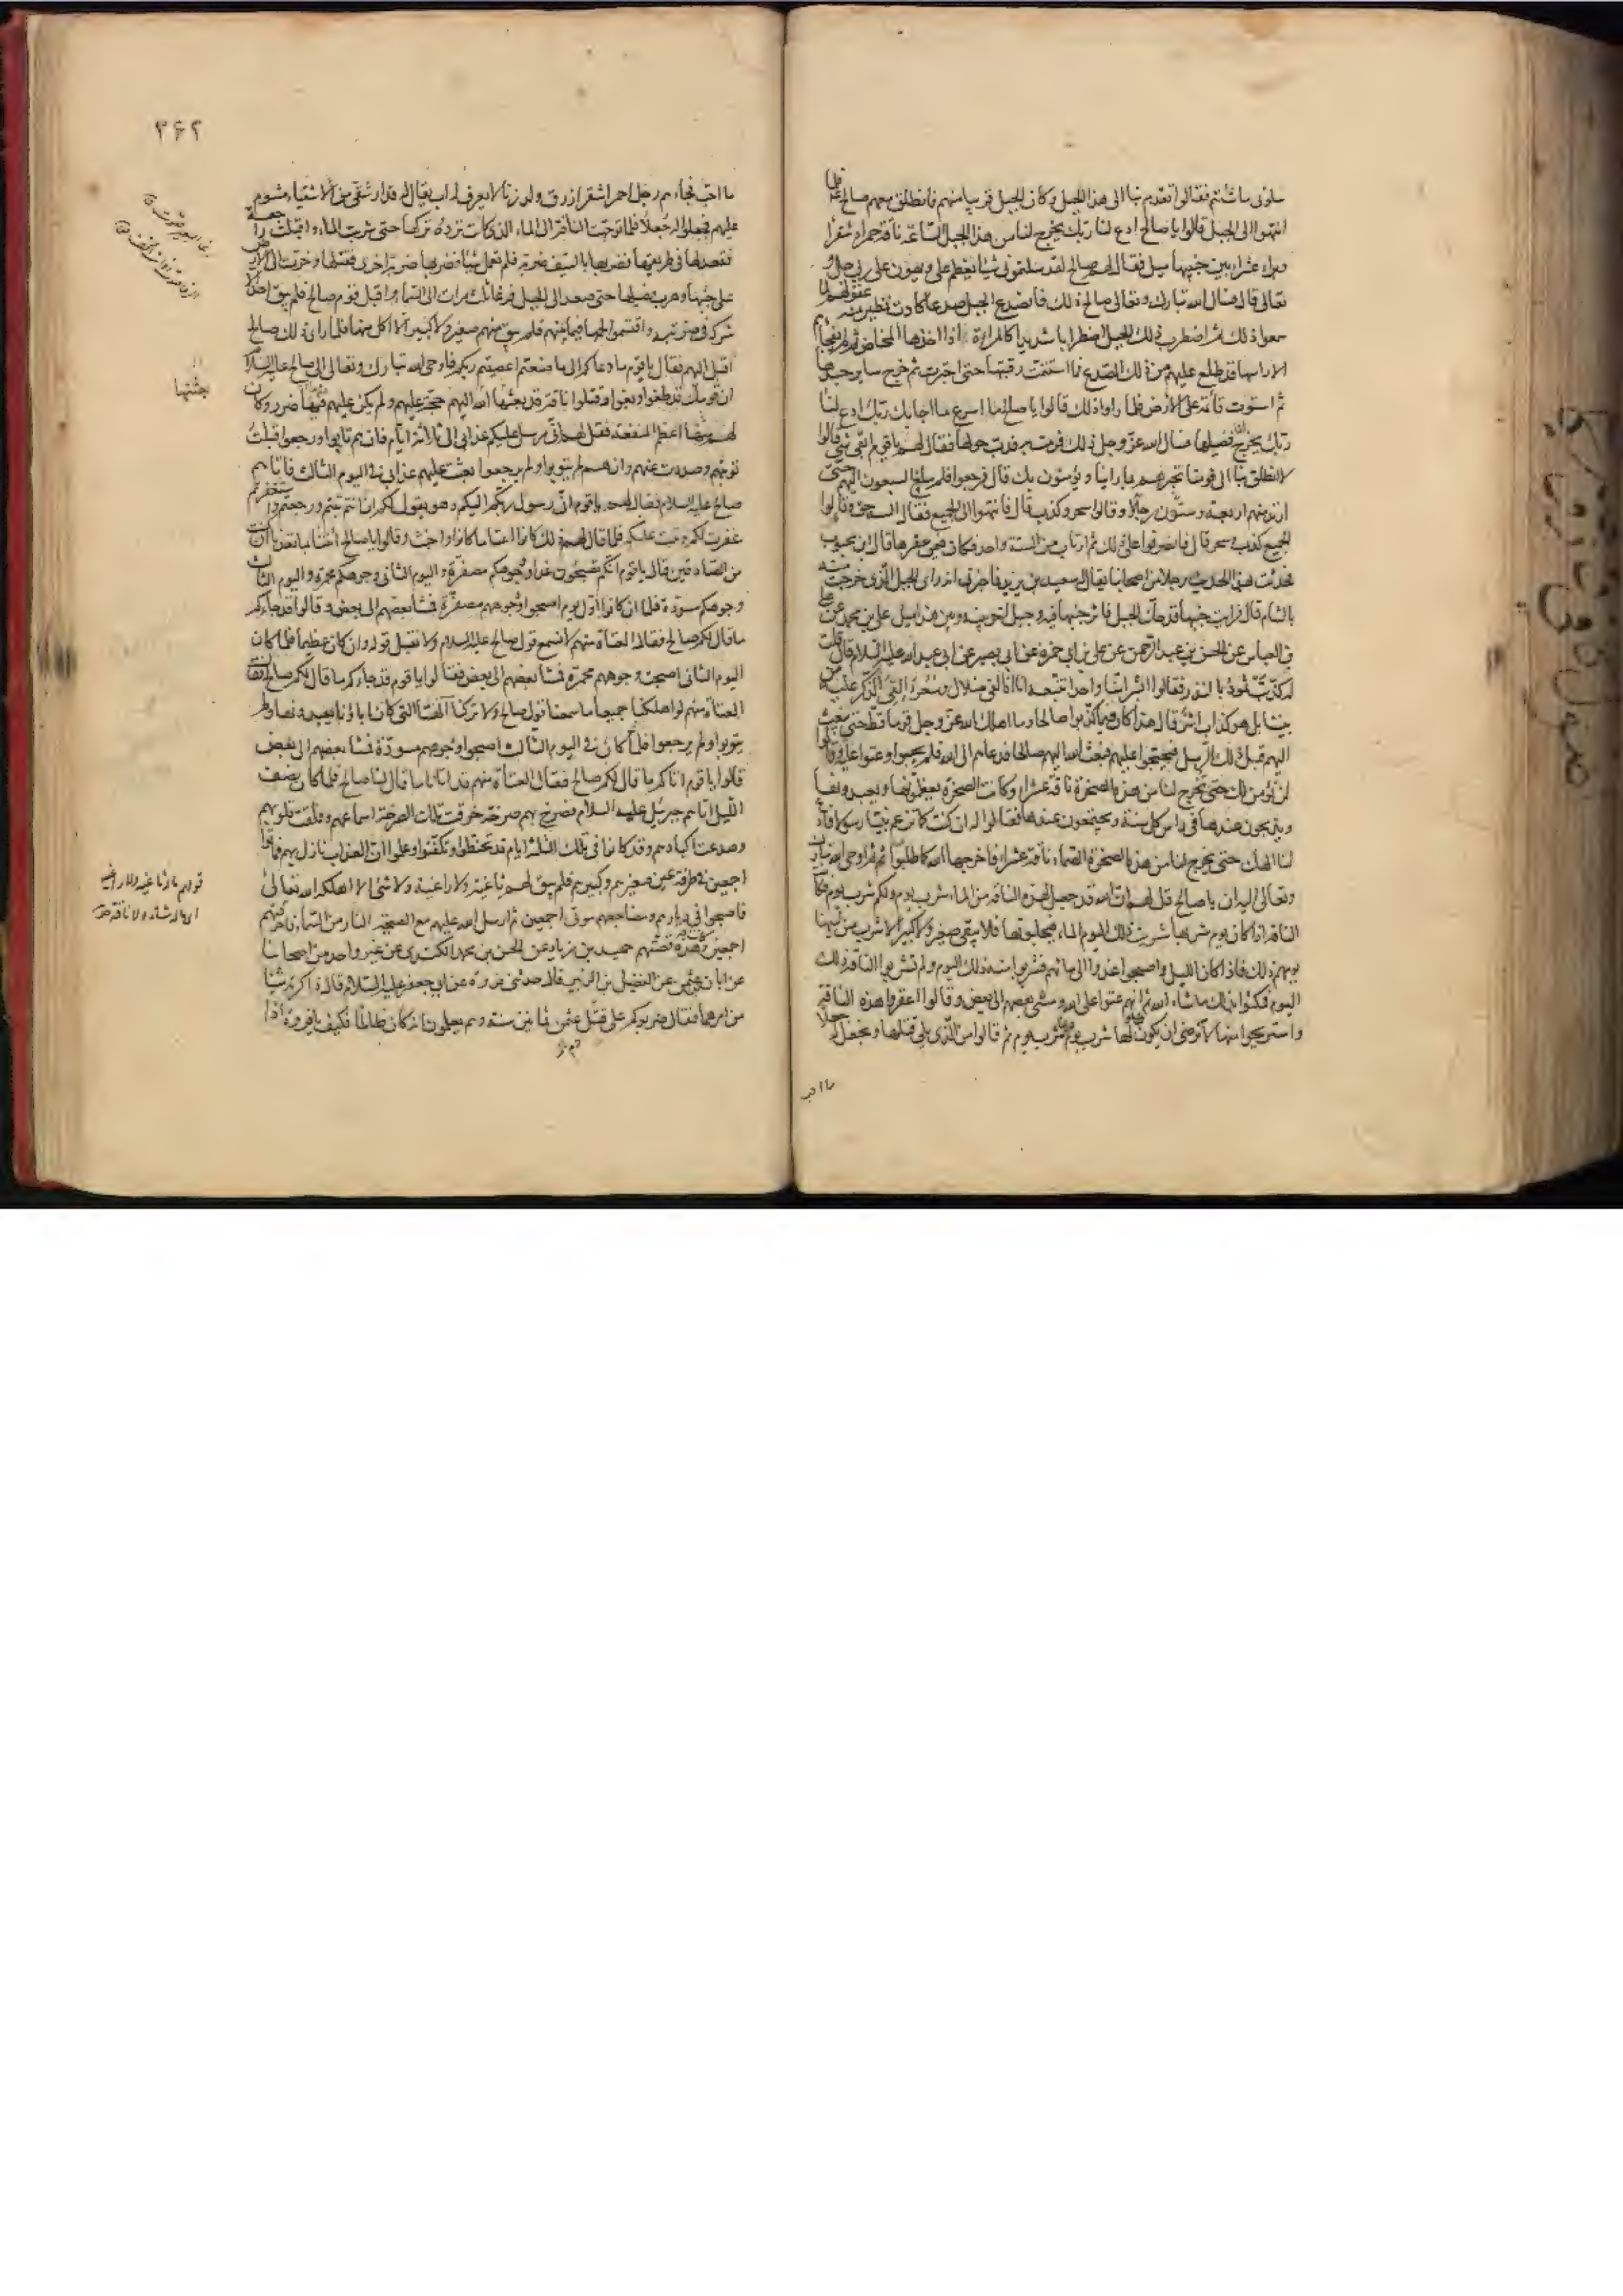 سلوني ما شئتم فقالوا تقدم بنا الى هذا الجبل وكان الجبل قريبا منهم فانطلق معهم صالح فلما
انتهوا الى الجبل قالوا يا صالح ادع لنا ربك يخرج لنا من هذا الجبل الساعة ناقة حمراء شقراء
وبراء عشراء بين جنبيها ميل فقال لهم صالح لقد سالتموني شيئا يعظم علي ويهون على ربي جل و
تعالى قال فسال الله تبارك وتعالى صالح ذلك فانصدع الجبل صدعا كادت تطير منه عقولهم لما
سمعوا ذلك ثم اضطرب ذلك الجبل اضطرابا شديدا كالمراة اذا اخذها المخاض ثم لم يفجأهم
الا راسها قد طلع عليهم من ذلك الصدع فما استتمت رقبتها حتى اجترت ثم خرج ساير جسدها
ثم استوت قائمة على الارض فلما راوا ذلك قالوا يا صالح ما اسرع ما اجابك ربك ادع لنا
ربك يخرج لنا فصيلها فسال الله عز وجل ذلك فرمت به فدب حولها فقال لهم يا قوم ابقي شيء قالوا
لا انطلق بنا الى قومنا نخبرهم بما راينا ويؤمنون بك قال فرجعوا فلم يبلغ السبعون اليهم حتى
ارتد منهم اربعة وستون رجلا وقالوا سحر وكذب قال فانتهوا الى الجميع فقال الستة حق وقالوا
الجميع كذب وسحر قال فانصرفوا على ذلك ثم ارتاب من الستة واحد فكان فيمن عقرها قال ابن محبوب
فحدثت بهذا الحديث رجلا من اصحابنا يقال له سعيد بن يزيد فاخبرني انه راى الجبل الذي خرجت منه
بالشام قال فرايت جنبها قد حك الجبل فاثر جنبها فيه وجبل اخر بينه وبين هذا ميل علي بن محمد عن علي
بن العباس عن الحسن بن عبد الرحمن عن علي بن ابي حمزة عن ابي بصير عن ابي عبد الله عليه السلام قال قلت
له كذبت ثمود بالنذر فقالوا ابشرا منا واحدا نتبعه انا اذا لفي ضلال وسعر االقي الذكر عليه من
بيننا بل هو كذاب اشر قال هذا كان فيما كذبوا صالحا وما اهلك الله عز وجل قوما قط حتى يبعث
اليهم قبل ذلك الرسل فيحتجوا عليهم فبعث الله اليهم صالحا فدعاهم الى الله فلم يجيبوا وعتوا عليه وقالوا
لن نؤمن لك حتى تخرج لنا من هذه الصخرة ناقة عشراء وكانت الصخرة يعظمونها ويعبدونها
ويذبحون عندها في راس كل سنة ويجتمعون عندها فقالوا له ان كنت كما تزعم نبيا رسولا فادع
لنا الهك حتى يخرج لنا من هذه الصخرة الصماء ناقة عشراء فاخرجها الله كما طلبوا ثم اوحى الله تبارك
وتعالى اليه ان يا صالح قل لهم ان الله قد جعل لهذه الناقة من الماء شرب يوم ولكم شرب يوم فكانت
الناقة اذا كان يوم شربها شربت ذلك اليوم الماء فيحلبونها فلا يبقى صغير ولا كبير الا شرب من لبنها
يومهم ذلك فاذا كان الليل واصبحوا غدوا الى مائهم فشربوا منه ذلك اليوم ولم تشرب الناقة ذلك
اليوم فمكثوا بذلك ما شاء الله ثم انهم عتوا على الله ومشى بعضهم الى بعض وقالوا اعقروا هذه الناقة
واستريحوا منها لا نرضى ان يكون لها شرب يوم ولنا شرب يوم ثم قالوا من الذي يلي قتلها ونجعل له جعلا
ما احب
٣۶٢
ما احب فجاءهم رجل احمر اشقر ازرق ولد زنا لا يعرف له اب يقال له قدار شقي من الاشقياء مشوم
عليهم فجعلوا له جعلا فلما توجهت الناقة الى الماء الذي كانت ترده تركها حتى شربت الماء واقبلت راجعة
فقعد لها في طريقها فضربها بالسيف ضربة فلم تعمل شيئا فضربها ضربة اخرى فقتلها وخرت الى الارض
على جنبها وهرب فصيلها حتى صعد الى الجبل فرغا ثلث مرات الى السماء واقبل قوم صالح فلم يبق احد الا
شركه في ضربته واقتسموا لحمها فيما بينهم فلم يبق منهم صغير ولا كبير الا اكل منها فلما راى ذلك صالح
اقبل اليهم فقال يا قوم ما دعاكم الى ما صنعتم اعصيتم ربكم فاوحى الله تبارك وتعالى الى صالح عليه السلام
ان قومك قد طغوا وبغوا وقتلوا ناقة قد بعثتها الله اليهم حجة عليهم ولم يكن عليهم فيها ضرر وكان
لهم منها اعظم المنفعة فقل لهم اني مرسل عليكم عذابي الى ثلاثة ايام فان هم تابوا ورجعوا قبلت
توبتهم وصددت عنهم وان هم لم يتوبوا ولم يرجعوا بعثت عليهم عذابي في اليوم الثالث فاتاهم
صالح عليه السلام فقال لهم يا قوم اني رسول ربكم اليكم وهو يقول لكم ان انتم تبتم ورجعتم واستغفرتم
غفرت لكم وتبت عليكم فلما قال لهم ذلك كانوا اعتا ما كانوا واخبث وقالوا يا صالح ائتنا بما تعدنا ان كنت
من الصادقين قال يا قوم انكم تصبحون غدا وجوهكم مصفرة واليوم الثاني وجوهكم محمرة واليوم الثالث
وجوهكم مسودة فلما ان كانوا اول يوم اصبحوا وجوههم مصفرة فمشا بعضهم الى بعض وقالوا قد جاءكم
ما قال لكم صالح فقال العتاة منهم لا نسمع قول صالح عليه السلام ولا نقبل قوله وان كان عظيما فلما كان
اليوم الثاني اصبحت وجوههم محمرة فمشا بعضهم الى بعض فقالوا يا قوم قد جاءكم ما قال لكم صالح فقال
العتاة منهم لو اهلكنا جميعا ما سمعنا قول صالح ولا تركنا آلهتنا التي كان اباؤنا يعبدونها ولم
يتوبوا ولم يرجعوا فلما كان في اليوم الثالث اصبحوا وجوههم مسودة فمشا بعضهم الى بعض
قالوا يا قوم اتاكم ما قال لكم صالح فقال العتاة منهم قد اتانا ما قال لنا صالح فلما كان نصف
الليل اتاهم جبرئيل عليه السلام فصرخ بهم صرخة خرقت تلك الصرخة اسماعهم وفلقت قلوبهم
وصدعت اكبادهم وقد كانوا في تلك الثلثة ايام قد تحنطوا وتكفنوا وعلموا ان العذاب نازل بهم فماتوا
اجمعين في طرفة عين صغيرهم وكبيرهم فلم يبق لهم ثاغية ولا راغية ولا شيء الا اهلكه الله تعالى
فاصبحوا في ديارهم ومضاجعهم موتى اجمعين ثم ارسل الله عليهم مع الصيحة النار من السماء فاحرقتهم
اجمعين وهذه قصتهم حميد بن زياد عن الحسن بن محمد الكندي عن غير واحد من اصحابنا
عن ابان بن عثمن عن الفضيل بن الزبير قال حدثني فروة عن ابي جعفر عليه السلام قال ذاكرته شيئا
من امرهما فقال ضربوكم على قتل عثمن ثمانين سنة وهم يعلمون انه كان ظالما فكيف يا فروة اذا
بعثتها
قولهم ما له ثاغية ولا راغية
اي ما له شاة ولا ناقة